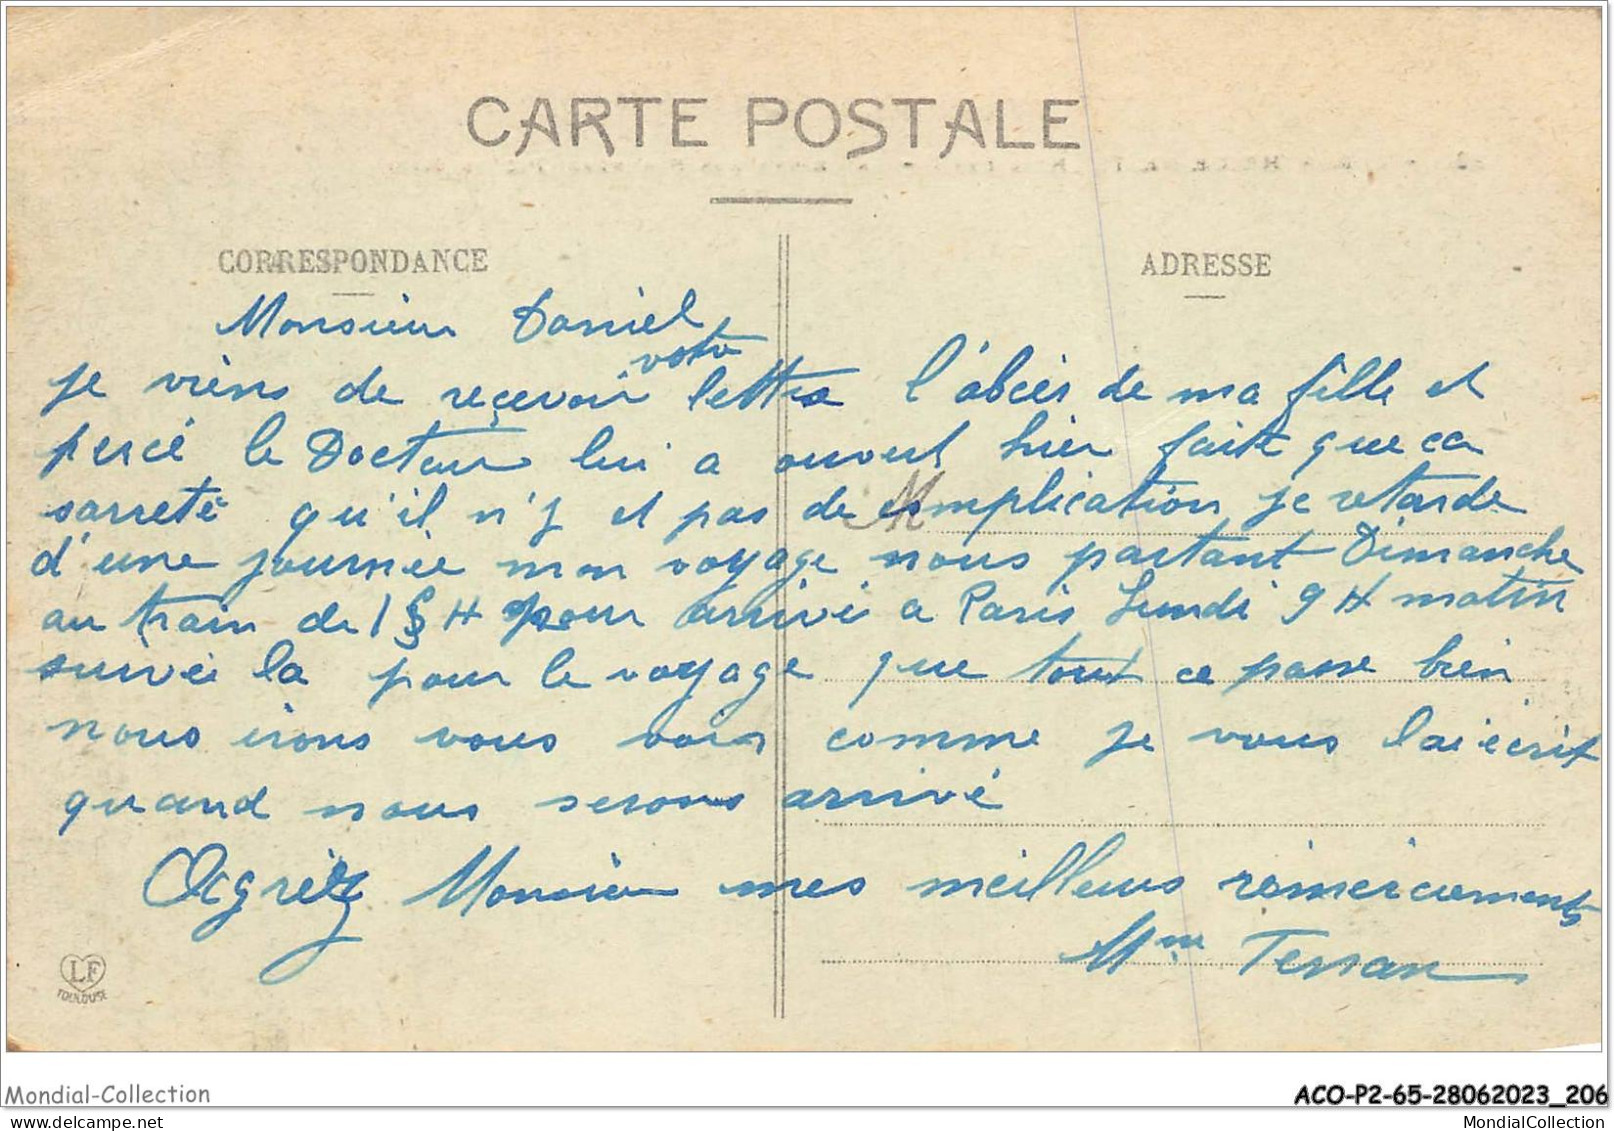 CARTE POSTALE
CORRESPONDANCE
ADRESSE
Monsieur Daniel
votre
je viens de reçevoir lettre l'abcés de ma fille et
percé le Docteur lui a ouvert hier faite que ca
sarreté qu'il n'y et pas de complication je retarde
d'une journée mon voyage nous partant Dimanche
au train de H pour arrivé a Paris Lundi 9 H matin
suivé la pour le voyage que tout ce passe bien
nous irons vous voir comme je vous lai écrit
quand nous serons arrivé
Agrèez Monsieur mes meilleurs remerciements
Mme
LF
TOULOUSE
Mondial-Collection
ACO-P2-65-28062023_206
www.delcampe.net
MondialCollection